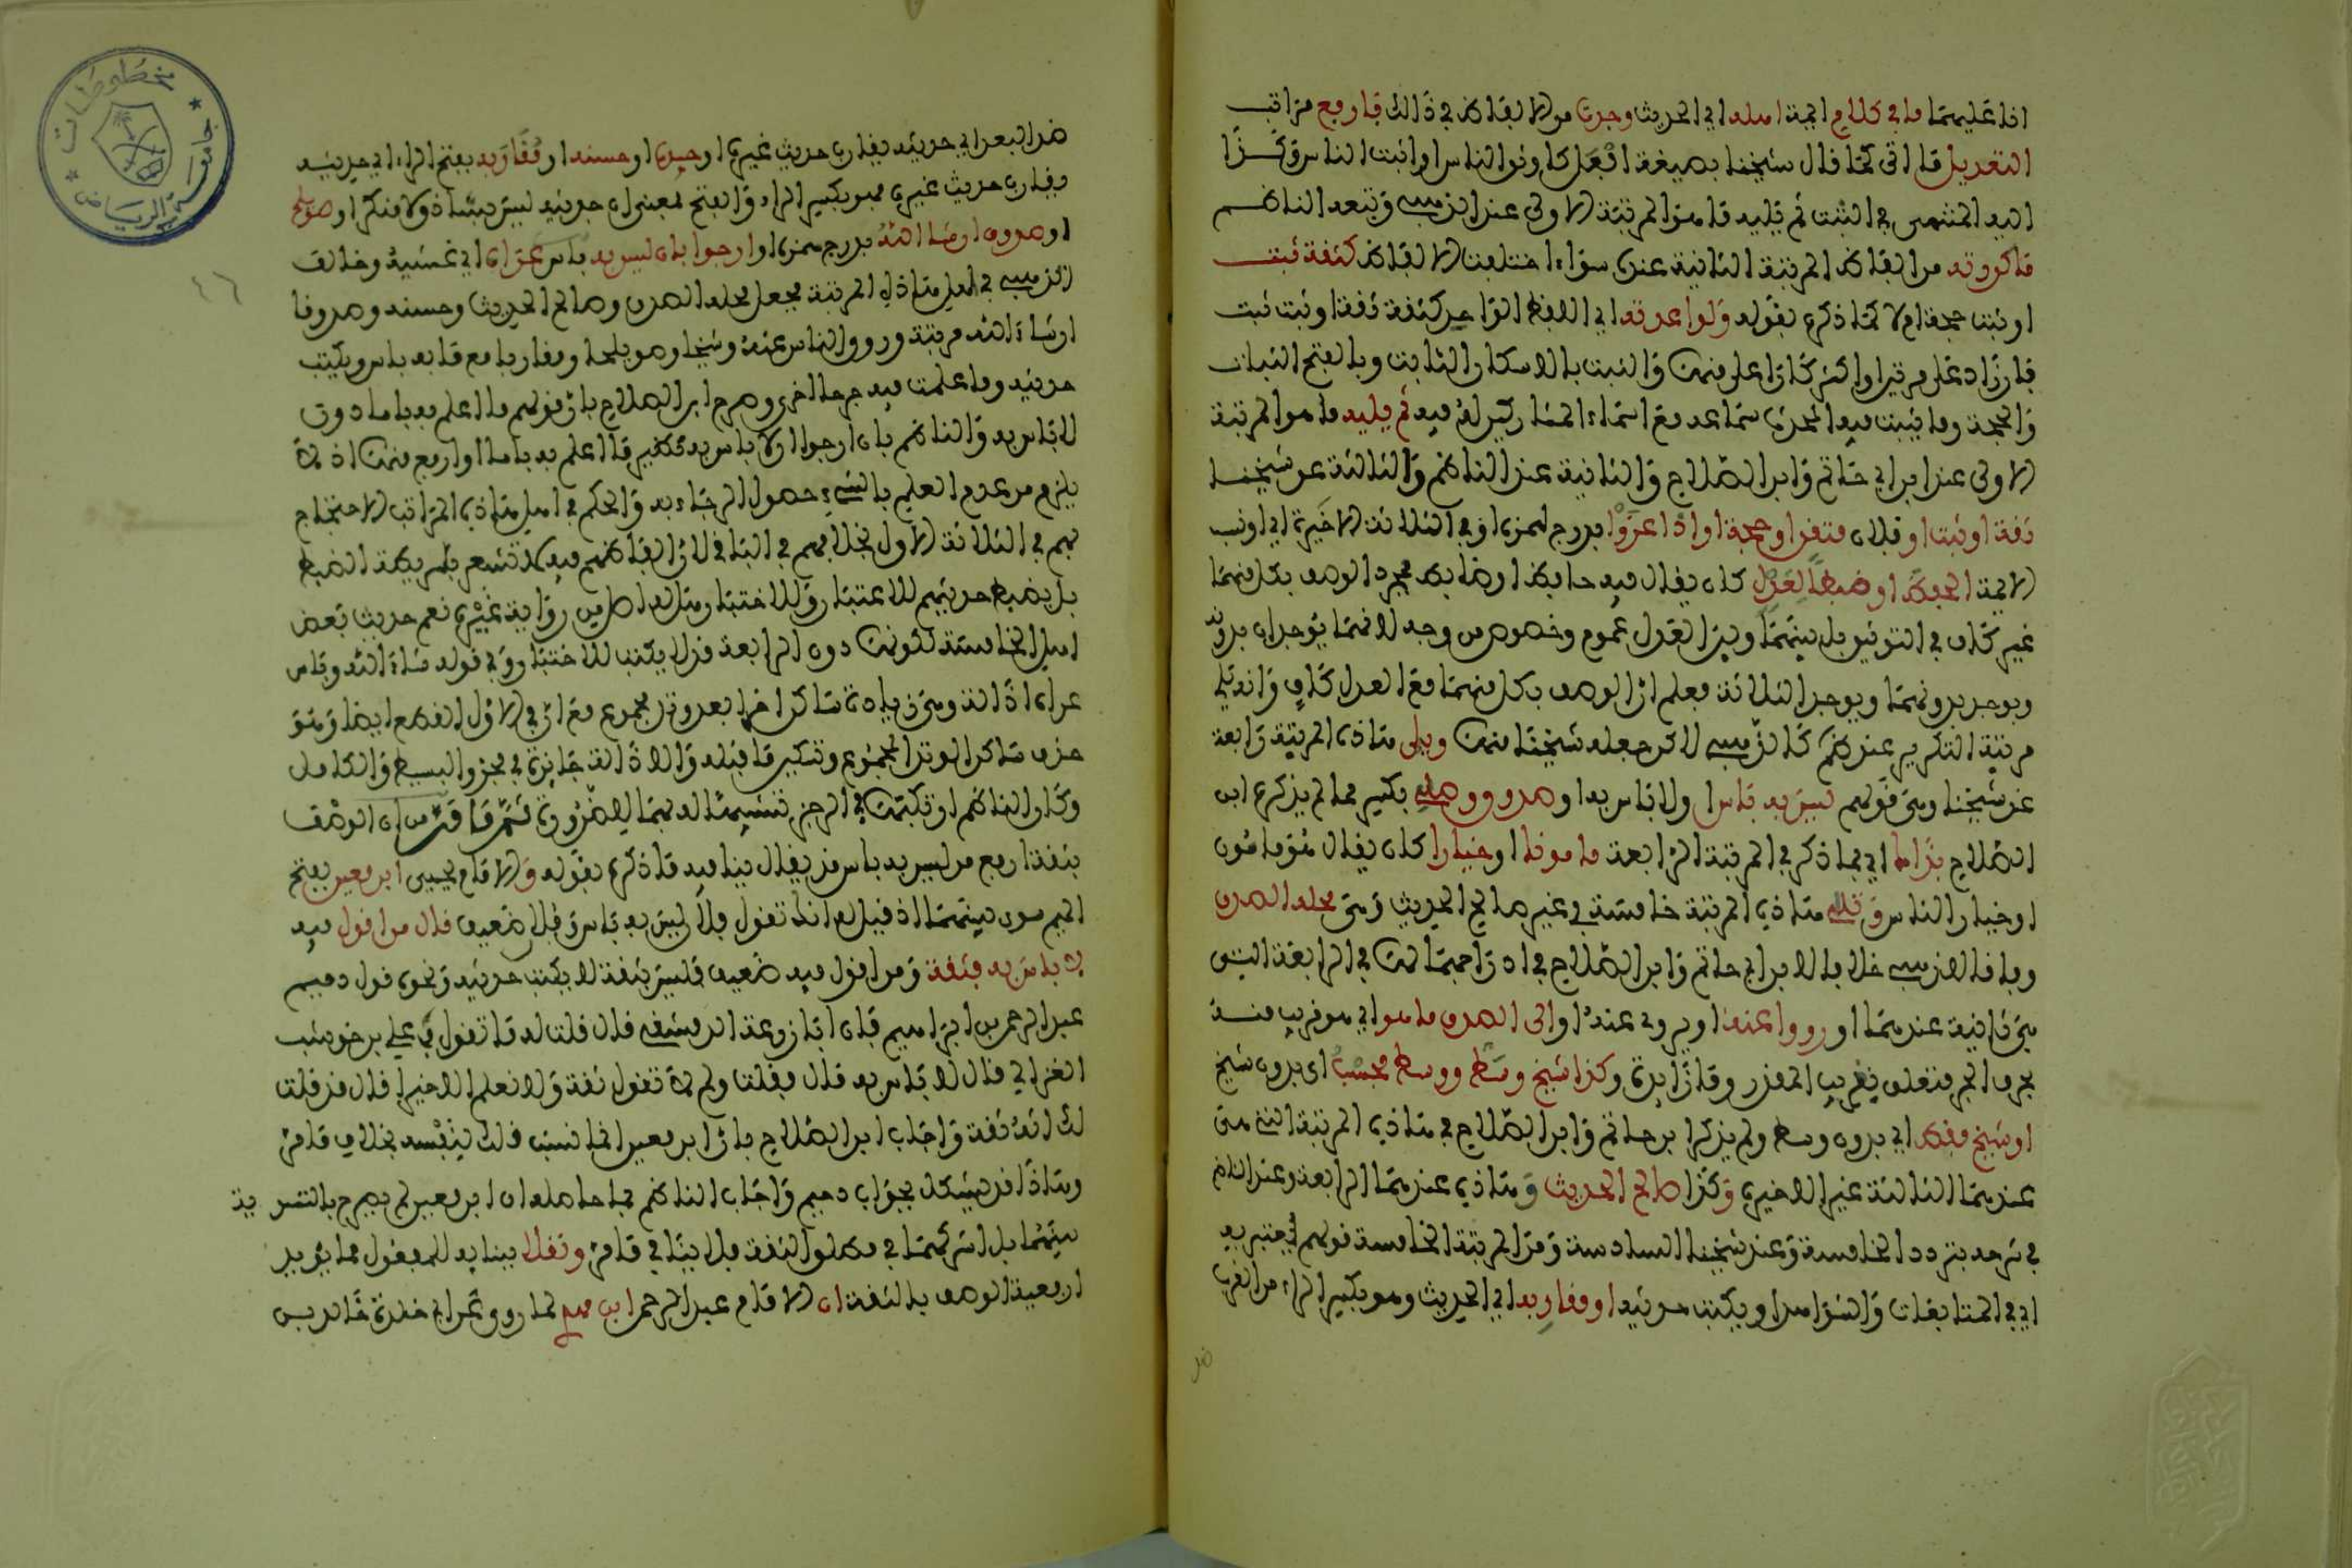 انا عليهما ما في كلام ايمة اهله اي الحديث وجدت من الالفاظ في ذالك فارفع مراتب
التعديل ما اتى كما قال شيخنا بصيغة افعل كاوثق الناس او اثبت الناس وكذا
اليه المنتهى في التثبت ثم يليه ما هو المرتبة الاولى عند الذهبي وتبعه الناظم
ما كررته من الفاظ المرتبة الثانية عندي سواء اختلفت الالفاظ كثقة ثبت
او ثبت حجة ام لا كما ذكره بقوله ولو اعدته اي اللفظ الواحد كثقة ثقة او ثبت ثبت
فان زاد على مرتين او اكثر كان اعلى منها والثبت بالاسكان الثابت وبالفتح الثبات
والحجة وما يثبت فيه المحدث سماعه مع اسماء المشاركين له فيه ثم يليه ما هو المرتبة
الاولى عند ابن ابي حاتم وابن الصلاح والثانية عند الناظم والثالثة عن شيخنا
ثقة او ثبت او فلان متقن او حجة او اذا عزوا بدرج الهمزة وفي الثلاثة الاخيرة اي او نسب
الايمة الحفظ او ضبطا لعدل كان يقال فيه حافظ او ضابط فمجرد الوصف بكل منهما
غير كاف في التوثيق بل بينهما وبين العدل عموم وخصوص من وجه لانهما يوجدان بدونه
ويوجد بدونهما ويوجد الثلاثة فعلم ان الوصف بكل منهما مع العدل كاف وانه يلي
مرتبة التكرير عند الناظم كالذهبي لاكن جعله شيخنا منها ويلي هاذه المرتبة رابعة
عند شيخنا وهي قولهم ليس به باس او لا باس به او صدوق وصل بكسر مما لم يذكره ابن
الصلاح بذاك اي بما ذكر في المرتبة الرابعة مامونا او خيارا كان يقال هو مامون
او خيار الناس وتلا هاذه المرتبة خامسة في غير صالح الحديث وهي محله الصدق
وما قاله الذهبي خلافا لابن ابي حاتم وابن الصلاح في ادراجهما لها في الرابعة التي
هي ثانية عندهما او رووا عنه او يروى عنه او الى الصدق ما هو اي هو قريب منه
بحرف الجر متعلق بقريب المقدر وما زائدة وكذا شيخ وسط ووسط فحسب اي بدون شيخ
او شيخ فقط اي بدون وسط ولم يذكر ابن حاتم وابن الصلاح في هاذه المرتبة التي هي
عندهما الثالثة غير الاخيرة وكذا صالح الحديث وهاذه عندهما الرابعة وعند الناظم
في شرحه بتردد الخامسة وعند شيخنا السادسة ومن المرتبة الخامسة قولهم يعتبر به
اي في المتابعات والشواهد او يكتب حديثه او مقاربه اي الحديث وهو بكسر الراء من القرب
ضد البعد اي حديثه يقارب حديث غيره او جيده او حسنه او مقاربه بفتح الراء اي حديثه
يقارب حديث غيره فهو بكسر الراء والفتح بمعنى ان حديثه ليس بشاذ ولا منكر او صويلح
او صدوق ان شا الله بدرج همزة او ارجو بان ليس به باس عراه اي غشيه وخالف
الذهبي في اهل هاذه المرتبة فجعل محله الصدق وصالح الحديث وحسنه وصدوقا
ان شاء الله مرتبة ورووا الناس عنه وشيخا وصويلحا ومقاربا مع ما به باس ويكتب
حديثه وما علمت فيه جرحا اخرى وصرح ابن الصلاح بان قولهم ما اعلم به باسا دون
لا باس به والناظم بان ارجوا ان لا باس به نظير ما اعلم به باسا او ارفع منها اذ لا
يلزم من عدم العلم بالشيء حصول الرجاء به والحكم في اهل هاذه المراتب الاحتجاج
بهم في الثلاثة الاول بخلافهم في الباقي لان الفاظهم فيه لا تشعر بشريطة الضبط
بل يضبط حديثهم للاعتبار وللاختبار هل له اصل من رواية غيره نعم حديث بعض
اهل الخامسة لكونها دون الرابعة قد لا يكتب للاختبار وفي قوله شاء الله وباس
عراه اذالة وهي زيادة ساكن اخر ما بعد وتد مجموع مع ان في الاول القطع ايضا وهو
حذف ساكن الوتد المجموع وتسكين ما قبله والاذالة جايزة في مجزو البسيط والكامل
وكان الناظم ارتكبها في الرجز تشبيها له بهما للضرورة ثم ما مر من ان الوصف
بثقة ارفع من ليس به باس قد يقال ينافيه ما ذكره بقوله والامام يحيى ابن معين بفتح
الميم سوى بينهما اذ قيل له انك تقول فلان ليس به باس وفلان ضعيف قال من اقول فيه
لا باس به فثقة ومن اقول فيه ضعيف فليس بثقة لا يكتب حديثه ونحوه قول دحيم
عبد الرحمن بن ابراهيم فان ابا زرعة الدمشقي قال قلت له ما تقول في علي بن حوشب
الفزاري قال لا باس به قال فقلت ولم لا تقول ثقة ولا نعلم الا خيرا قال قد قلت
لك انه ثقة واجاب ابن الصلاح بان ابن معين انما نسب ذلك لنفسه بخلاف ما مر
وهاذا قد يشكل بجواب دحيم واجاب الناظم بما حاصله ان ابن معين لم يصرح بالتسوية
بينهما بل اشركهما في مطلق الثقة فلا ينافي ما مر ونقلا ببنائه للمفعول مما يؤيد
ارفعية الوصف بالثقة ان الامام عبد الرحمن ابن مهدي لما روى عن ابي خلدة خالد بن
جامعة الرياض
مخطوطات
٤٦
ضد